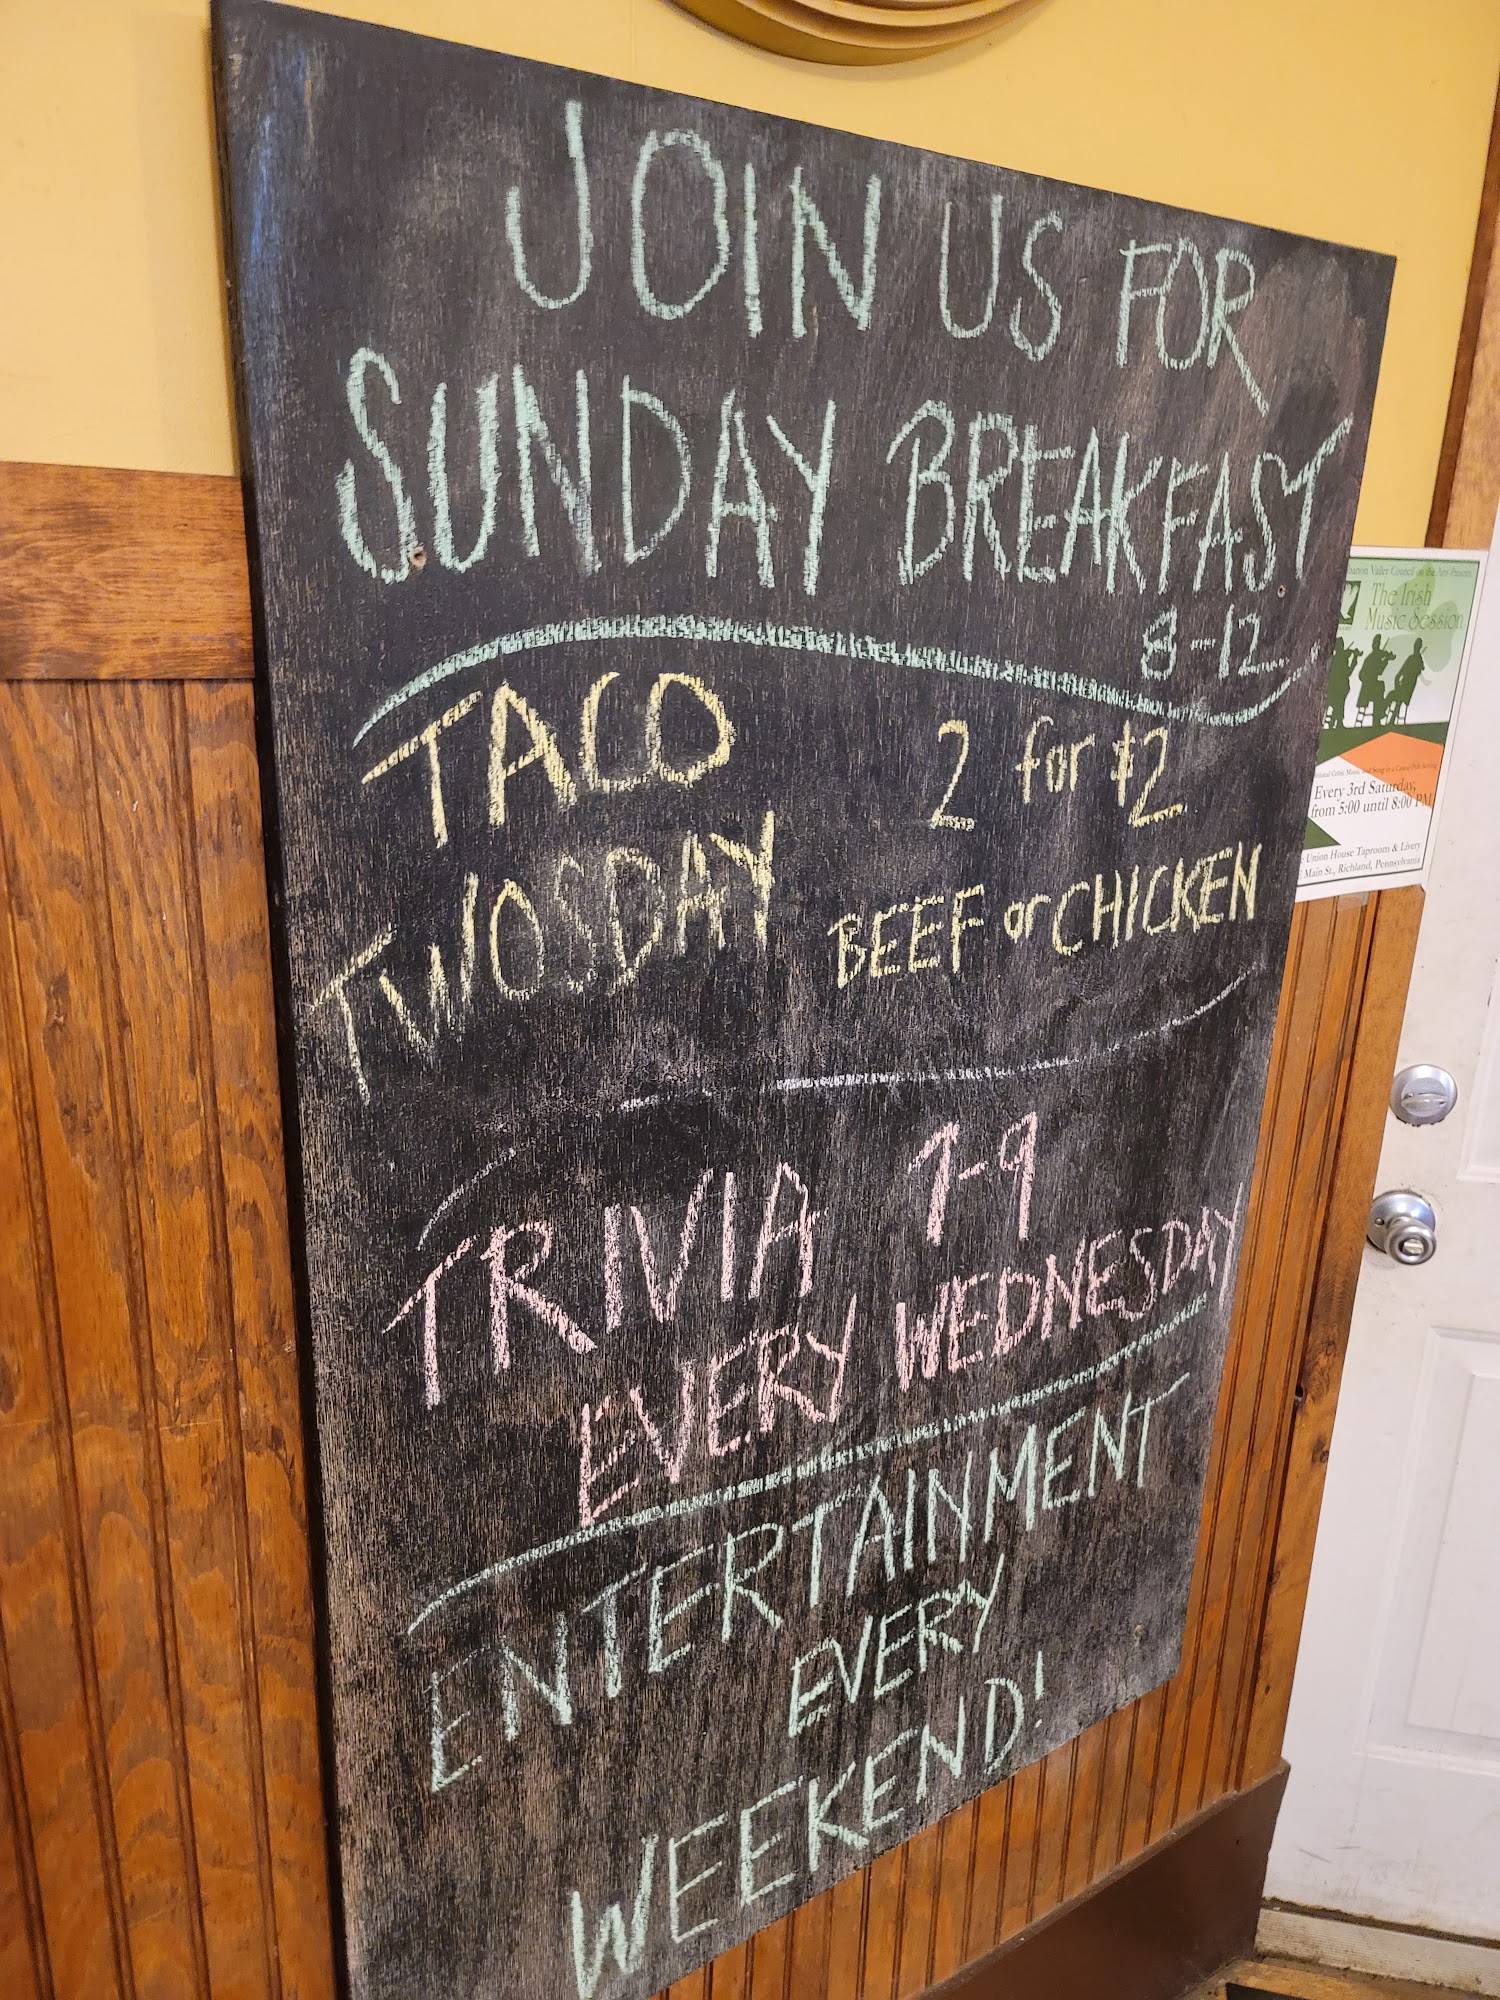 JOIN US FOR
SUNDAY BREAKFAST
8-12
TACO
TWOSDAY
2 for $2
BEEF or CHICKEN
TRIVIA 7-9
EVERY WEDNESDAY
ENTERTAINMENT
EVERY
WEEKEND!
Valley Council on the Arts Presents
The Irish
Music Session
Every 3rd Saturday,
from 5:00 until 8:00 PM
Union House Taproom & Livery
Main St., Richland, Pennsylvania